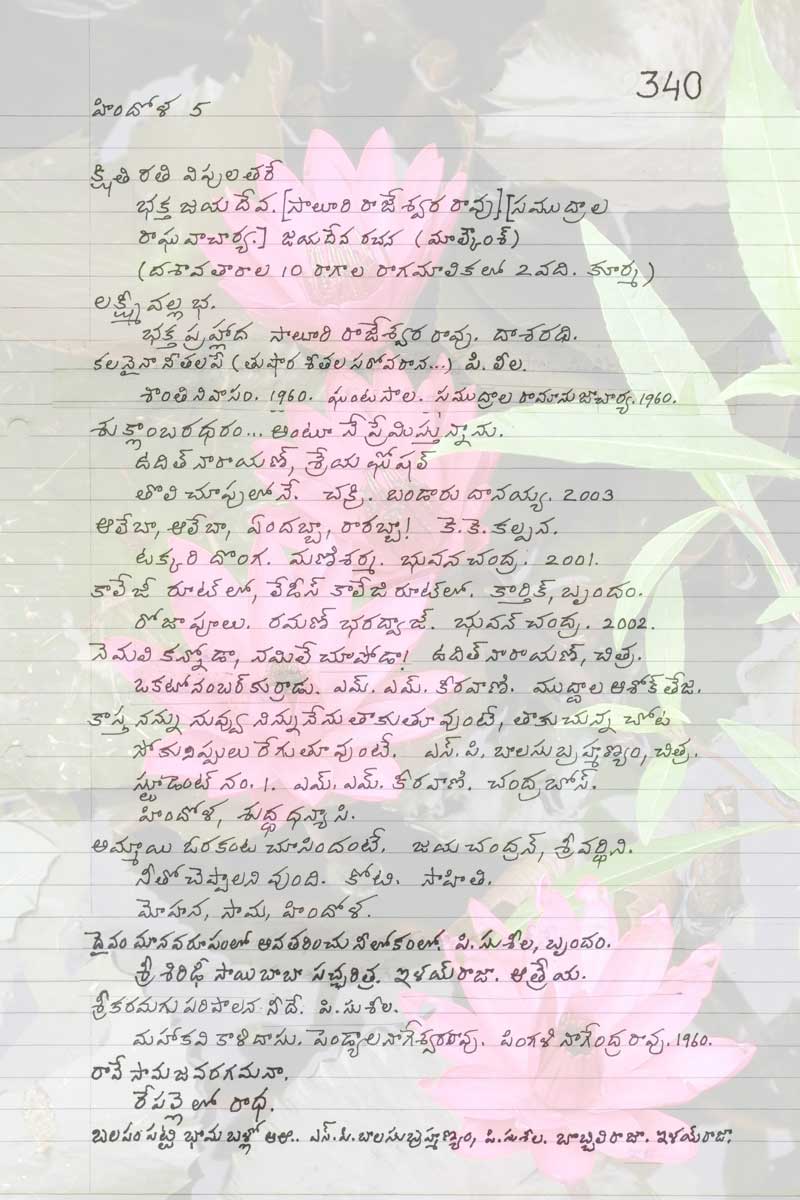 340
హిందోళ 5
క్షితి రతి విపులతరే
భక్త జయదేవ. [సాలూరి రాజేశ్వర రావు] [సముద్రాల
రాఘవాచార్య.] జయదేవ రచన (మాల్కౌంశ్)
(దశావతారాల 10 రాగాల రాగమాలికలో 2వది. కూర్మ)
లక్ష్మీవల్లభ.
భక్త ప్రహ్లాద సాలూరి రాజేశ్వర రావు. దాశరథి.
కలనైనా నీతలపే (తుషార శీతల సరోవరాన...) పి. లీల.
శాంతినివాసం. 1960. ఘంటసాల. సముద్రాల రామానుజాచార్య. 1960.
శుక్లాంబరధరం... అంటూ నే ప్రేమిస్తున్నాను.
ఉదిత్ నారాయణ్, శ్రేయ ఘోషల్
తొలి చూపులోనే. చక్రి. బండారు దానయ్య. 2003
ఆలేబా, ఆలేబా, ఏందబ్బా, రారబ్బా! కె. కె. కల్పన.
టక్కరి దొంగ. మణిశర్మ. భువనచంద్ర. 2001.
కాలేజీ రూట్ లో, లేడీస్ కాలేజి రూట్‌లో. కార్తిక్, బృందం.
రోజాపూలు. రమణ్ భరద్వాజ్. భువన్ చంద్ర. 2002.
నెమలి కన్నోడా, నమిలే చూపోడా! ఉదిత్ నారాయణ్, చిత్ర.
ఒకటోనంబర్ కుర్రాడు. ఎమ్. ఎమ్. కీరవాణి. ముద్దాల ఆశోక్ తేజ.
కాస్త నన్ను నువ్వు నిన్ను నేను తాకుతూ వుంటే, తాకుచున్న చోట
సోకునిప్పులు రేగుతూ వుంటే. ఎస్. పి. బాలసుబ్రహ్మణ్యం, చిత్ర.
స్టూడెంట్ నం. 1. ఎమ్. ఎమ్. కీరవాణి. చంద్రబోస్.
హిందోళ, శుద్ధ ధన్యాసి.
అమ్మాయి ఓరకంట చూసిందంటే. జయచంద్రన్, శ్రీవర్ధిని.
నీతో చెప్పాలని వుంది. కోటి. సాహితి.
మోహన, సామ, హిందోళ.
దైవం మానవరూపంలో అవతరించు నీలోకంలో. పి. సుశీల, బృందం.
శ్రీ శిరిడీ సాయి బాబా సచ్చరిత్ర. ఇళయ్‌రాజా. ఆత్రేయ.
శ్రీకరమగు పరిపాలన నీదే. పి. సుశీల.
మహాకవి కాళిదాసు. పెండ్యాల నాగేశ్వరరావు. పింగళి నాగేంద్ర రావు. 1960.
రావే సామజవరగమనా.
రేపల్లె లో రాధ.
బలపం పట్టి భామ బళ్లో అఆ.. ఎస్. పి. బాలసుబ్రహ్మణ్యం, పి. సుశీల. బొబ్బిలిరాజా. ఇళయ్‌రాజా.